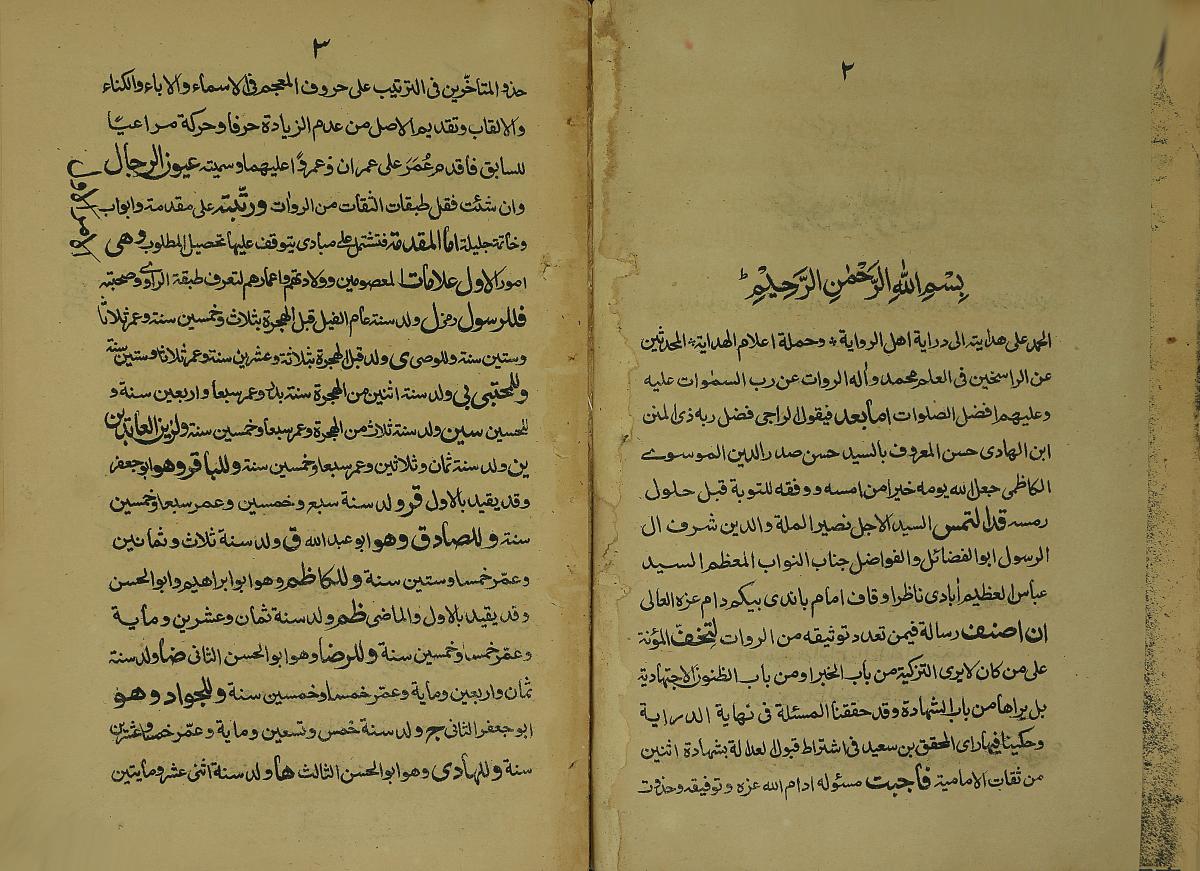 ٢
بسم الله الرحمن الرحيم
الحمد على هدايته الى دراية اهل الرواية وحملة اعلام الهداية المحدثين
عن الراسخين فى العلم محمد وآله الروات عن رب السموات عليه
وعليهم افضل الصلوات اما بعد فيقول الراجى فضل ربه ذى المنن
ابن الهادى حسن المعروف بالسيد حسن صدر الدين الموسوے
الكاظمى جعل الله يومه خيرا من امسه ووفقه للتوبة قبل حلول
رمسه قد التمس السيد الاجل نصير الملة والدين شرف ال
الرسول ابو الفضائل والفواضل جناب النواب المعظم السيد
عباس العظيم أبادى ناظر اوقاف امام باندى بيكم دام عزه العالى
ان اصنف رسالة فيمن تعدد توثيقه من الروات لتخف المؤنة
على من كان لا يرى التزكية من باب الخبر او من باب الظنون الاجتهادية
بل يراها من باب الشهادة وقد حققنا المسئلة فى نهاية الدراية
وحكينا فيها راى المحقق بن سعيد فى اشتراط قبول العدالة بشهادة اثنين
من ثقات الامامية فاجبت مسئوله ادام الله عزه وتوفيقه وحذوت
٣
حذو المتاخّرين فى الترتيب على حروف المعجم فى الاسماء والاباء والكناء
والالقاب وتقديم الاصل من عدم الزيادة حرفا وحركة مراعيًا
للسابق فاقدم عُمَرَ على عمران وعمروًا عليهما وسميته عيون الرجال
وان شئت فقل طبقات الثقات من الروات ورتّبته على مقدمة وابواب
وخاتمة جليلة اما المقدمة فتشتمل على مبادى يتوقف عليها تحصيل المطلوب وهى
الامر الاول
امور الاول علامات المعصومين وولادتهم واعمارهم لتعرف طبقة الراوے وصحبته
فللرسول ل ولد سنة عام الفيل قبل الهجرة بثلاث وخمسين سنة وعمر ثلاثا
وستين سنة وللوصى ى ولد قبل الهجرة بثلاثة وعشرين سنة وعمر ثلاثا وستين سنة
وللمجتبى بى ولد سنة اثنين من الهجرة سنة بدر وعمر سبعا واربعين سنة و
للحسين سين ولد سنة ثلاث من الهجرة وعمر سبعا وخمسين سنة ولزين العابدين
ين ولد سنة ثمان وثلاثين وعمر سبعا وخمسين سنة وللباقر وهو ابو جعفر
وقد يقيد بالاول قر ولد سنة سبع وخمسين وعمر سبعا وخمسين
سنة وللصادق وهو ابو عبد الله ق ولد سنة ثلاث وثمانين
وعمّر خمسا وستين سنة وللكاظم وهو ابو ابراهيم وابو الحسن
وقد يقيد بالاول والماضى ظم ولد سنة ثمان وعشرين وماية
وعمّر خمسا وخمسين سنة وللرضا وهو ابو الحسن الثانى ضا ولد سنة
ثمان واربعين وماية وعمّر خمسا وخمسين سنة وللجواد وهو
ابو جعفر الثانى ج ولد سنة خمس وتسعين وماية وعمّر خمسا وعشرين
سنة وللهادى وهو ابو الحسن الثالث ها ولد سنة اثنى عشر ومايتين